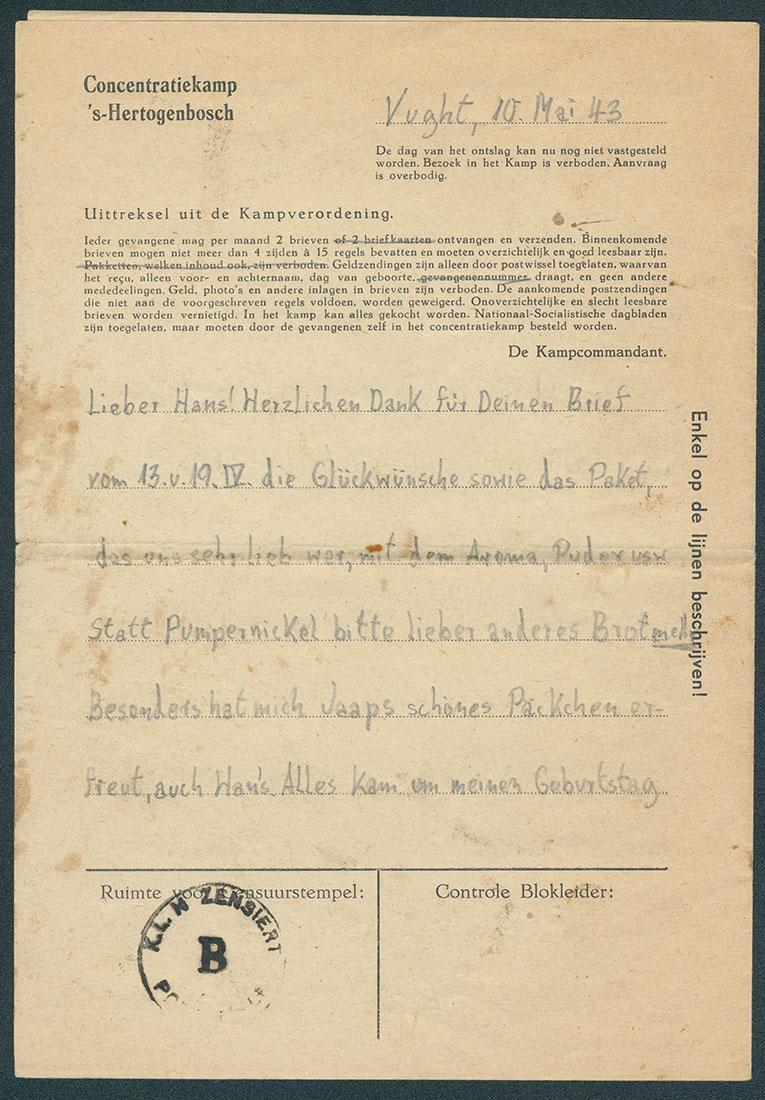 Concentratiekamp
's-Hertogenbosch
Vught, 10. Mai 43
De dag van het ontslag kan nu nog niet vastgesteld
worden. Bezoek in het Kamp is verboden. Aanvraag
is overbodig.
Uittreksel uit de Kampverordening.
Ieder gevangene mag per maand 2 brieven of 2 briefkaarten ontvangen en verzenden. Binnenkomende
brieven mogen niet meer dan 4 zijden à 15 regels bevatten en moeten overzichtelijk en goed leesbaar zijn.
Pakketten, welken inhoud ook, zijn verboden. Geldzendingen zijn alleen door postwissel toegelaten, waarvan
het reçu, alleen voor- en achternaam, dag van geboorte, gevangenennummer draagt, en geen andere
mededeelingen. Geld, photo's en andere inlagen in brieven zijn verboden. De aankomende postzendingen
die niet aan de voorgeschreven regels voldoen, worden geweigerd. Onoverzichtelijke en slecht leesbare
brieven worden vernietigd. In het kamp kan alles gekocht worden. Nationaal-Socialistische dagbladen
zijn toegelaten, maar moeten door de gevangenen zelf in het concentratiekamp besteld worden.
De Kampcommandant.
Lieber Hans! Herzlichen Dank für Deinen Brief
vom 13. u. 19. IV. die Glückwünsche sowie das Paket,
das uns sehr lieb war, mit dem Aroma, Puder usw
Statt Pumpernickel bitte lieber anderes Brot
Besonders hat mich Jaaps schönes Päckchen er-
freut, auch Han's. Alles kam um meinen Geburtstag
Enkel op de lijnen beschrijven!
Ruimte voor Censuurstempel:
Controle Blokleider:
K.L. H ZENSIERT
B